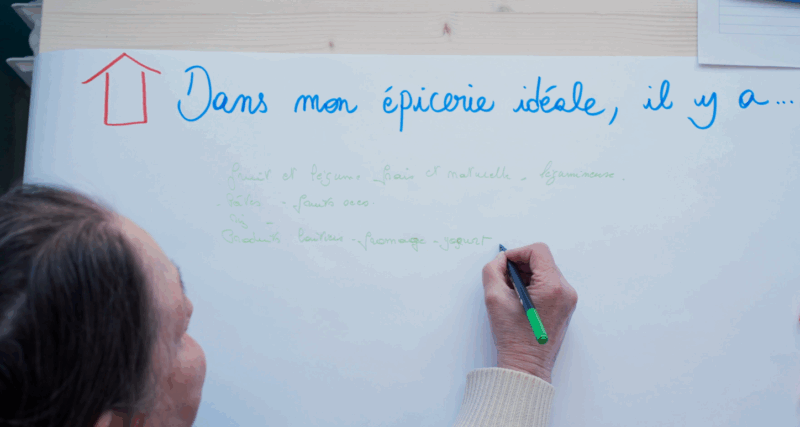 Dans mon épicerie idéale, il y a...
fruit et légume frais et naturelle - légumineuse.
- Pâtes - fruits secs.
Riz -
Produits laitiers - fromage - yogurt